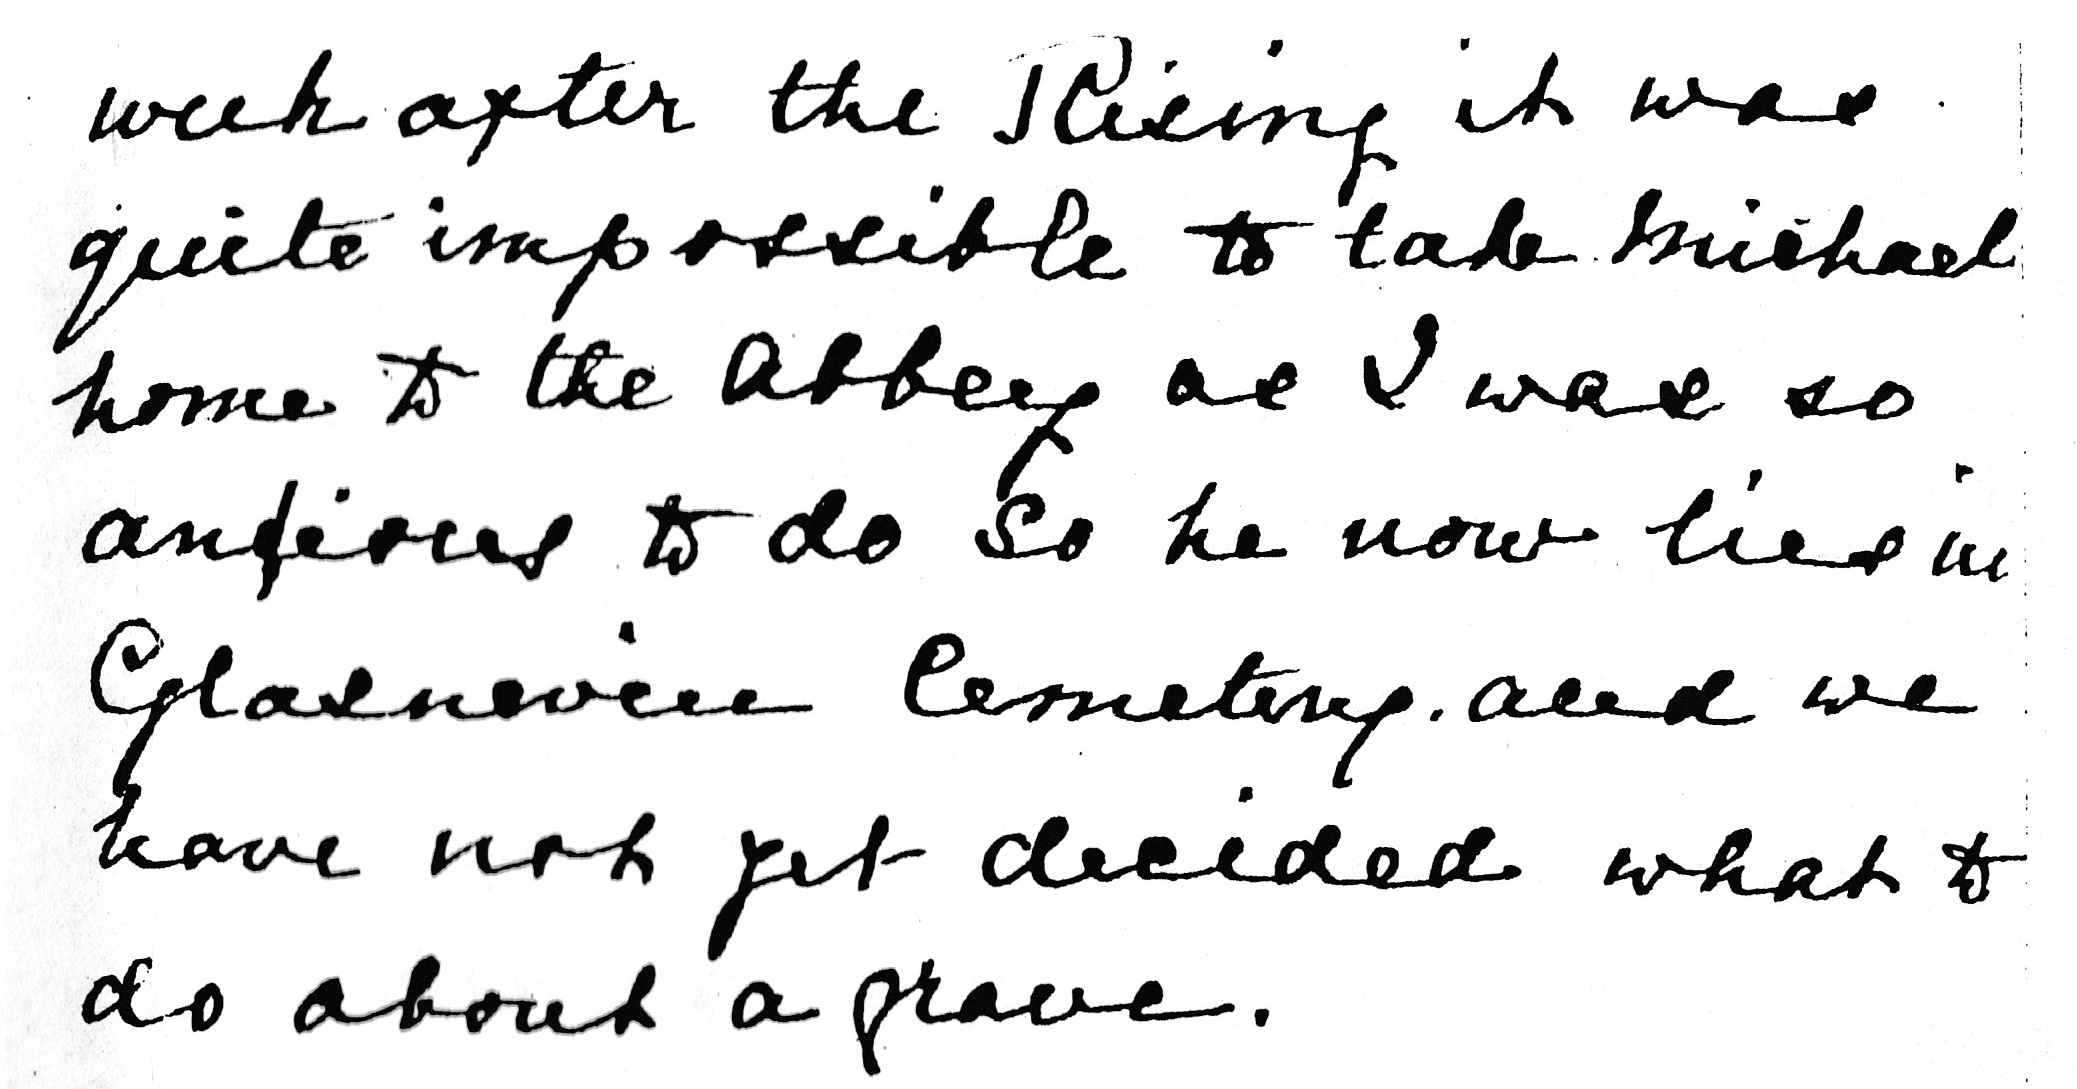 week after the Rising it was
quite impossible to take Michael
home to the Abbey as I was so
anxious to do So he now lies in
Glasnevin Cemetery. and we
have not yet decided what to
do about a grave.